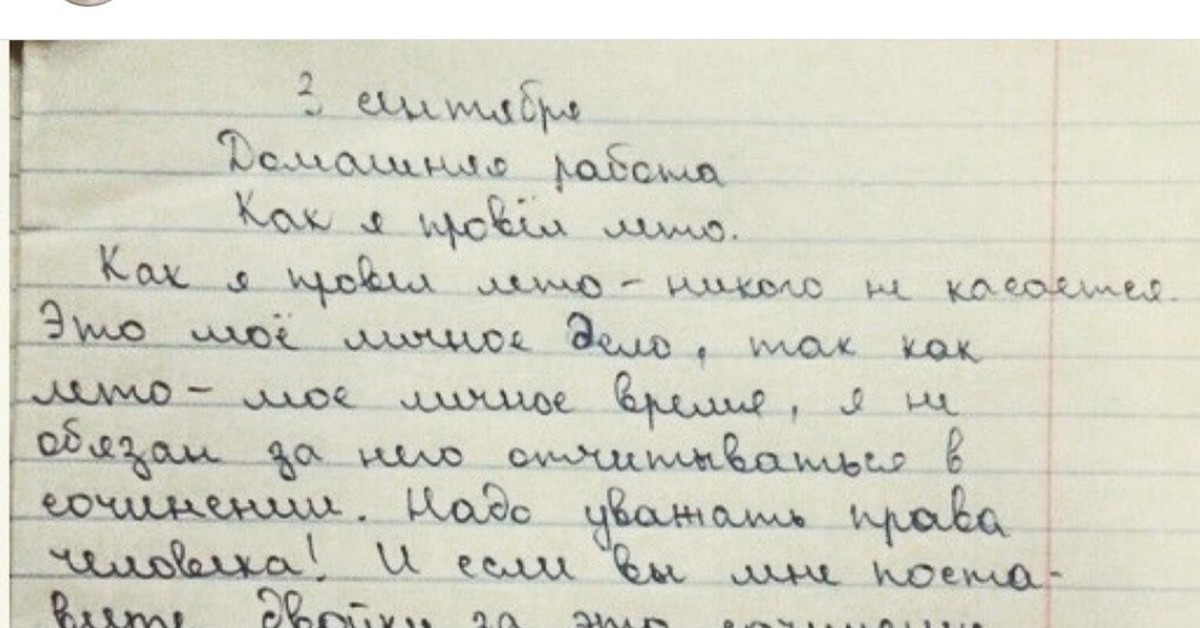 3 сентября
Домашняя работа
Как я провёл лето.
Как я провёл лето - никого не касается.
Это моё личное дело, так как
лето - мое личное время, я не
обязан за него отчитываться в
сочинении. Надо уважать права
человека! И если вы мне поста-
вите двойку за это сочинение